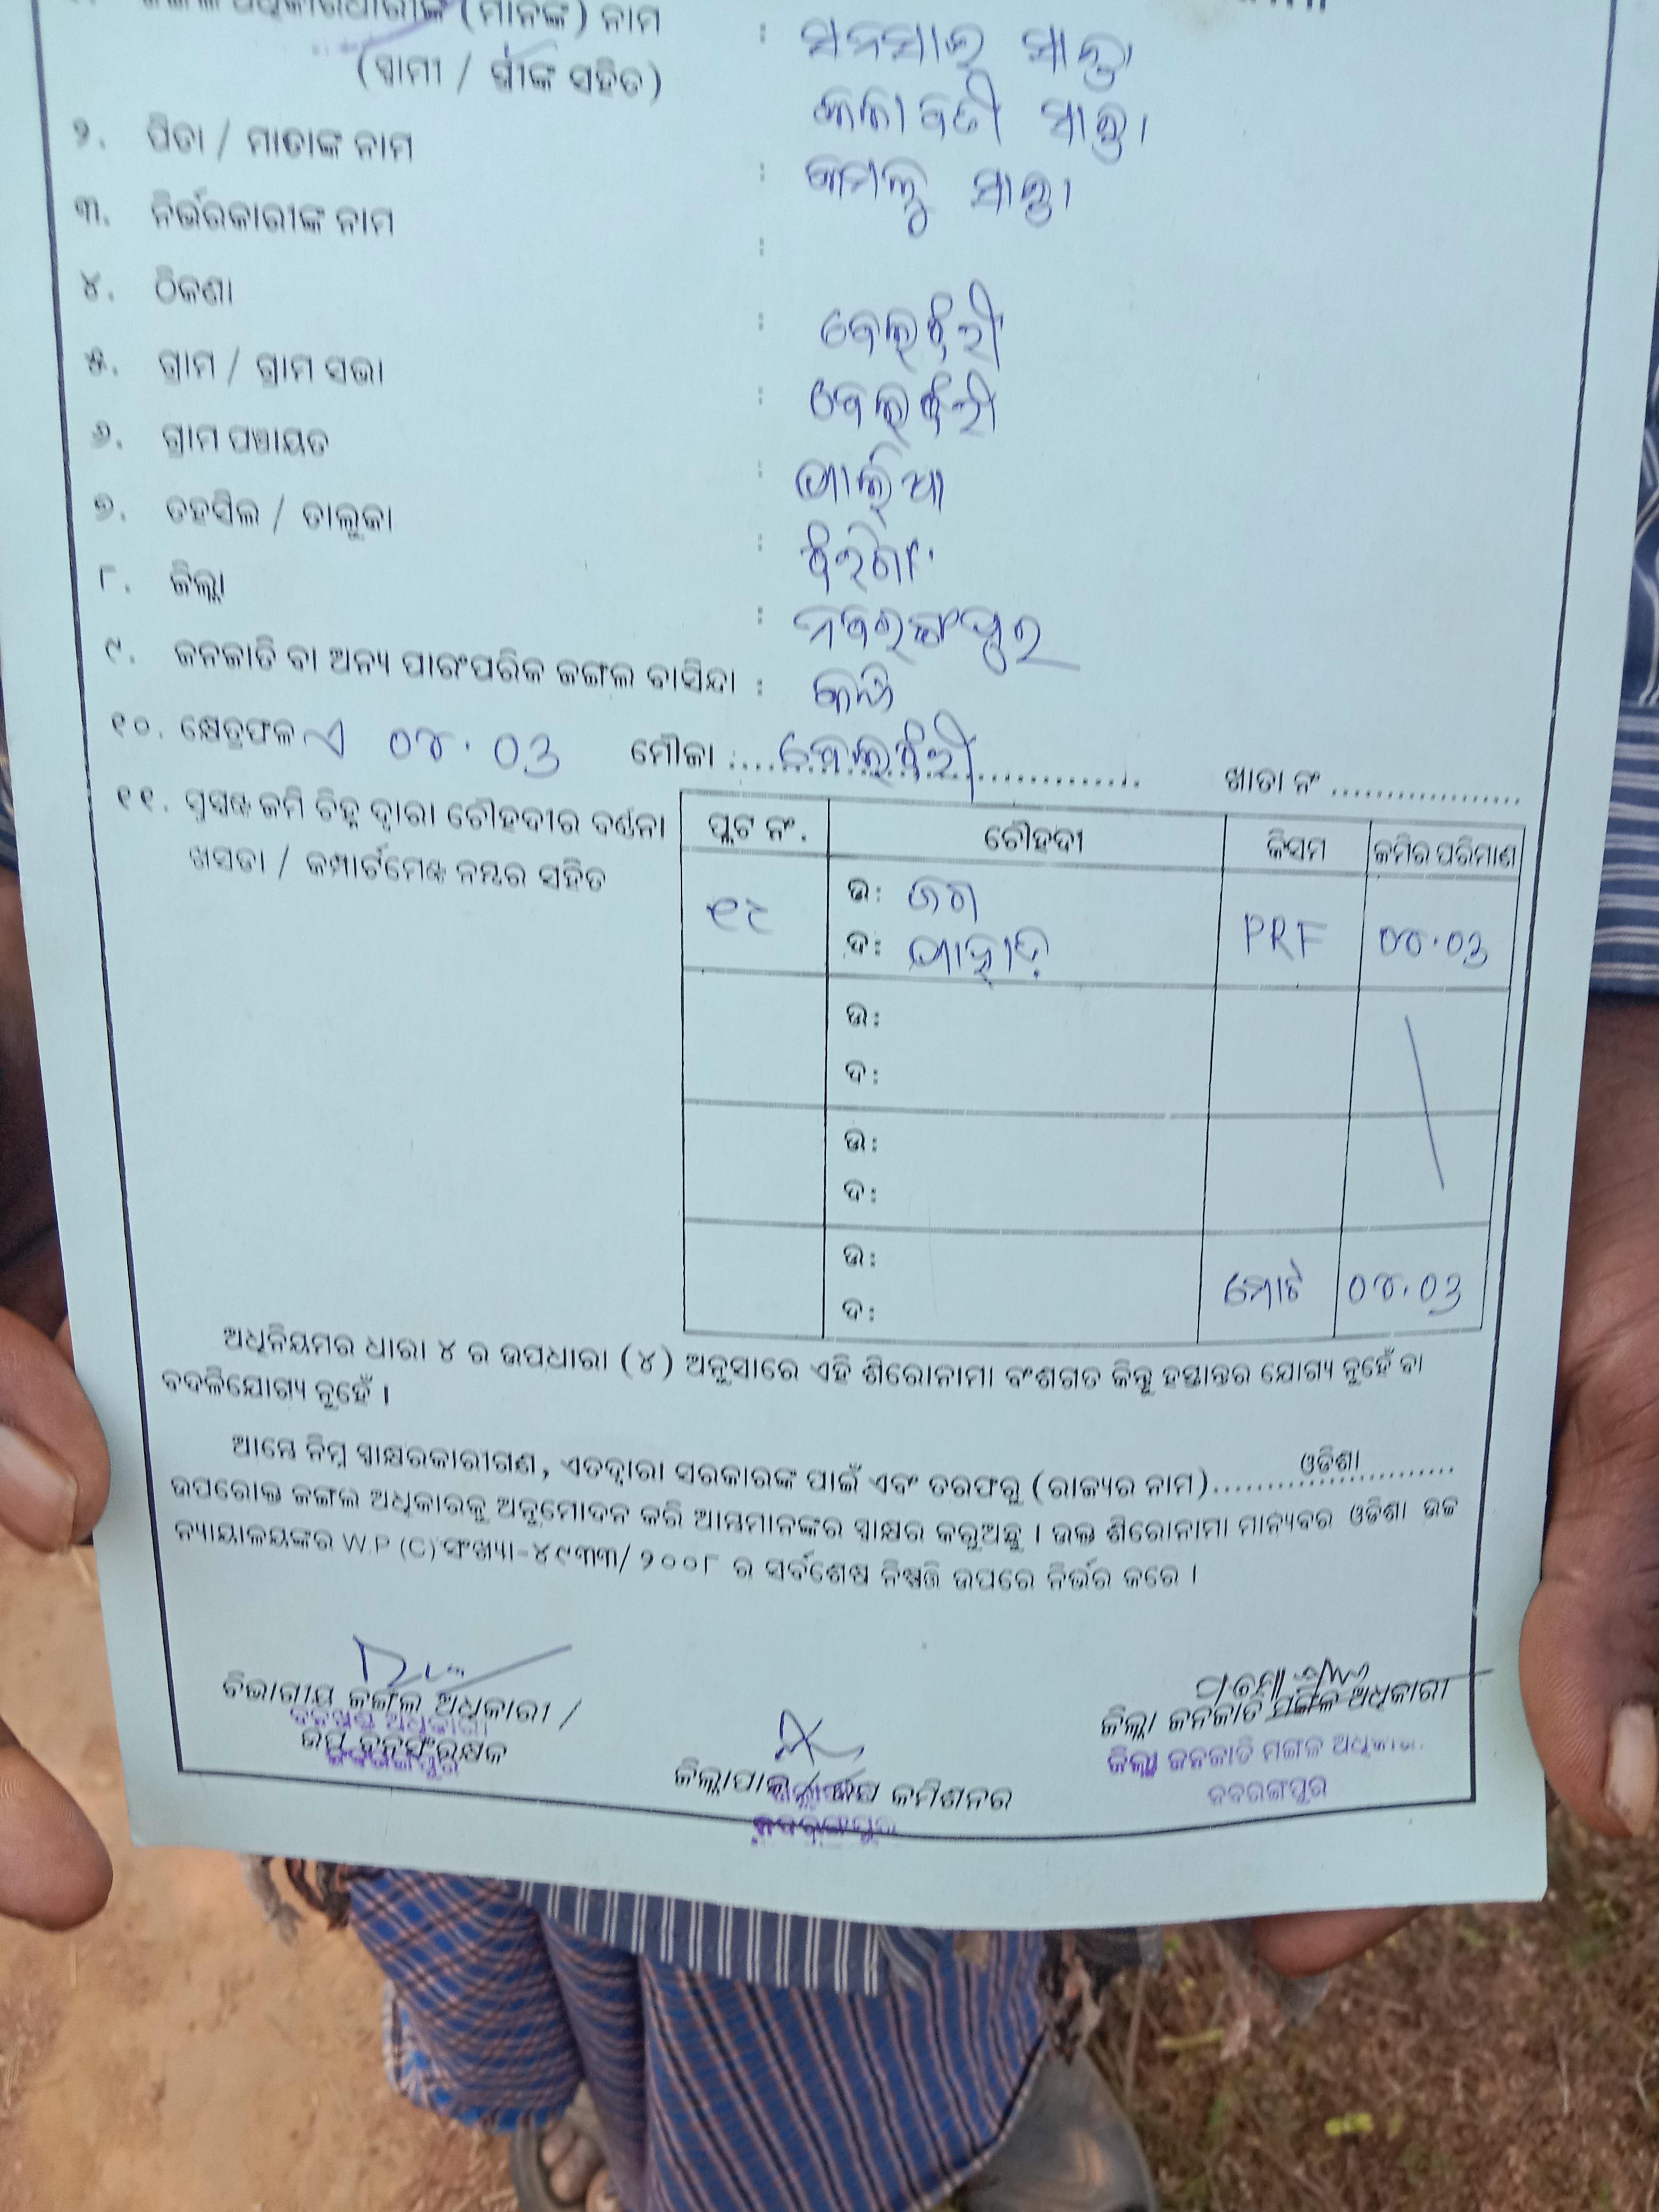 ଜଙ୍ଗଲ ଅଧିକାରଧାରୀଙ୍କ (ମାନଙ୍କ) ନାମ : ସାନ୍ତା
(ସ୍ୱାମୀ / ସ୍ତ୍ରୀଙ୍କ ସହିତ) ସାନ୍ତା
୨. ପିତା / ମାତାଙ୍କ ନାମ : କମଳୁ ସାନ୍ତା
୩. ନିର୍ଭରକାରୀଙ୍କ ନାମ :
୪. ଠିକଣା :
୫. ଗ୍ରାମ / ଗ୍ରାମ ସଭା :
୬. ଗ୍ରାମ ପଞ୍ଚାୟତ :
୭. ତହସିଲ / ତାଲୁକା : ଝରିଗାଁ
୮. ଜିଲ୍ଲା : ନବରଙ୍ଗପୁର
୯. ଜନଜାତି ବା ଅନ୍ୟ ପାରଂପରିକ ଜଙ୍ଗଲ ବାସିନ୍ଦା :
୧୦. କ୍ଷେତ୍ରଫଳ ଏ ୦୪.୦୩ ମୌଜା : ଖାତା ନଂ
୧୧. ପ୍ରସ୍ତୁତ ଜମି ଚିହ୍ନ ଦ୍ୱାରା ଚୌହଦୀର ବର୍ଣ୍ଣନା
ଖସଡା / କମ୍ପାର୍ଟମେଣ୍ଟ ନମ୍ବର ସହିତ
ପ୍ଲଟ ନଂ. ଚୌହଦୀ କିସମ ଜମିର ପରିମାଣ
ଉ: PRF ୦୪.୦୩
ଦ: ପାହାଡ଼
ଉ:
ଦ:
ଉ:
ଦ:
ଉ: ମୋଟ ୦୪.୦୩
ଦ:
ଅଧିନିୟମର ଧାରା ୪ ର ଉପଧାରା (୪) ଅନୁସାରେ ଏହି ଶିରୋନାମା ବଂଶଗତ କିନ୍ତୁ ହସ୍ତାନ୍ତର ଯୋଗ୍ୟ ନୁହେଁ ବା
ବଦଳିଯୋଗ୍ୟ ନୁହେଁ ।
ଆମ୍ଭେ ନିମ୍ନ ସ୍ୱାକ୍ଷରକାରୀଗଣ, ଏତଦ୍ୱାରା ସରକାରଙ୍କ ପାଇଁ ଏବଂ ତରଫରୁ (ରାଜ୍ୟର ନାମ) ଓଡିଶା
ଉପରୋକ୍ତ ଜଙ୍ଗଲ ଅଧିକାରକୁ ଅନୁମୋଦନ କରି ଆମ୍ଭମାନଙ୍କର ସ୍ୱାକ୍ଷର କରୁଅଛୁ । ଉକ୍ତ ଶିରୋନାମା ମାନ୍ୟବର ଓଡିଶା ଉଚ୍ଚ
ନ୍ୟାୟାଳୟଙ୍କର W.P (C) ସଂଖ୍ୟା-୪୯୩୩/୨୦୦୮ ର ସର୍ବଶେଷ ନିଷ୍ପତ୍ତି ଉପରେ ନିର୍ଭର କରେ ।
ବିଭାଗୀୟ ଜଙ୍ଗଲ ଅଧିକାରୀ /
ବନଖଣ୍ଡ ଅଧିକାରୀ
ଉପ ବନସଂରକ୍ଷକ
ନବରଙ୍ଗପୁର
ଜିଲ୍ଲାପାଳ / ଉପ କମିଶନର
ନବରଙ୍ଗପୁର
ଜିଲ୍ଲା ଜନଜାତି ମଙ୍ଗଳ ଅଧିକାରୀ
ଜିଲ୍ଲା ଜନଜାତି ମଙ୍ଗଳ ଅଧିକାରୀ
ନବରଙ୍ଗପୁର